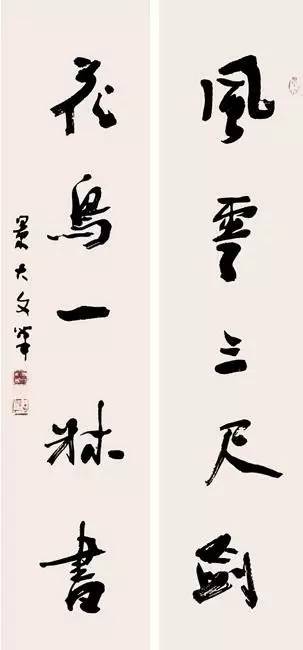 風雲三尺劍
花鳥一牀書
景大文